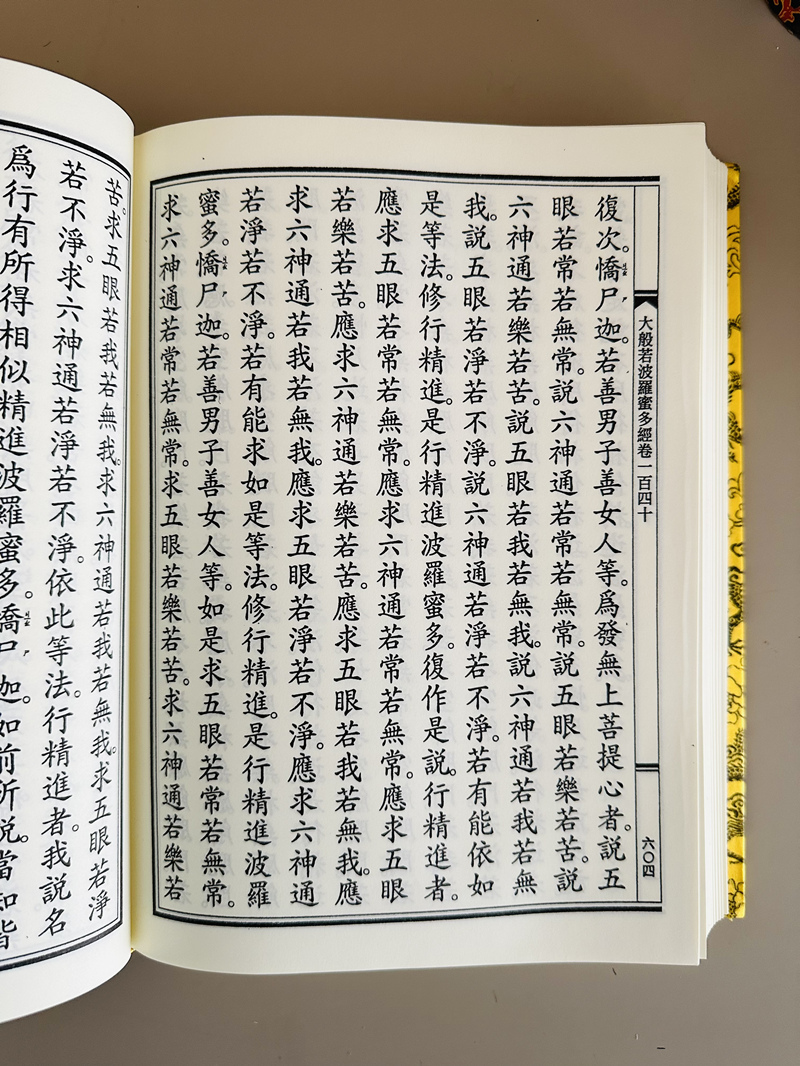 大般若波羅蜜多經卷一百四十
六〇四
復次。憍尸迦。若善男子善女人等。爲發無上菩提心者。說五
眼若常若無常。說六神通若常若無常。說五眼若樂若苦。說
六神通若樂若苦。說五眼若我若無我。說六神通若我若無
我。說五眼若淨若不淨。說六神通若淨若不淨。若有能依如
是等法。修行精進。是行精進波羅蜜多。復作是說。行精進者。
應求五眼若常若無常。應求六神通若常若無常。應求五眼
若樂若苦。應求六神通若樂若苦。應求五眼若我若無我。應
求六神通若我若無我。應求五眼若淨若不淨。應求六神通
若淨若不淨。若有能求如是等法。修行精進。是行精進波羅
蜜多。憍尸迦。若善男子善女人等。如是求五眼若常若無常。
求六神通若常若無常。求五眼若樂若苦。求六神通若樂若
苦。求五眼若我若無我。求六神通若我若無我。求五眼若淨
若不淨。求六神通若淨若不淨。依此等法。行精進者。我說名
爲行有所得相似精進波羅蜜多。憍尸迦。如前所說。當知皆